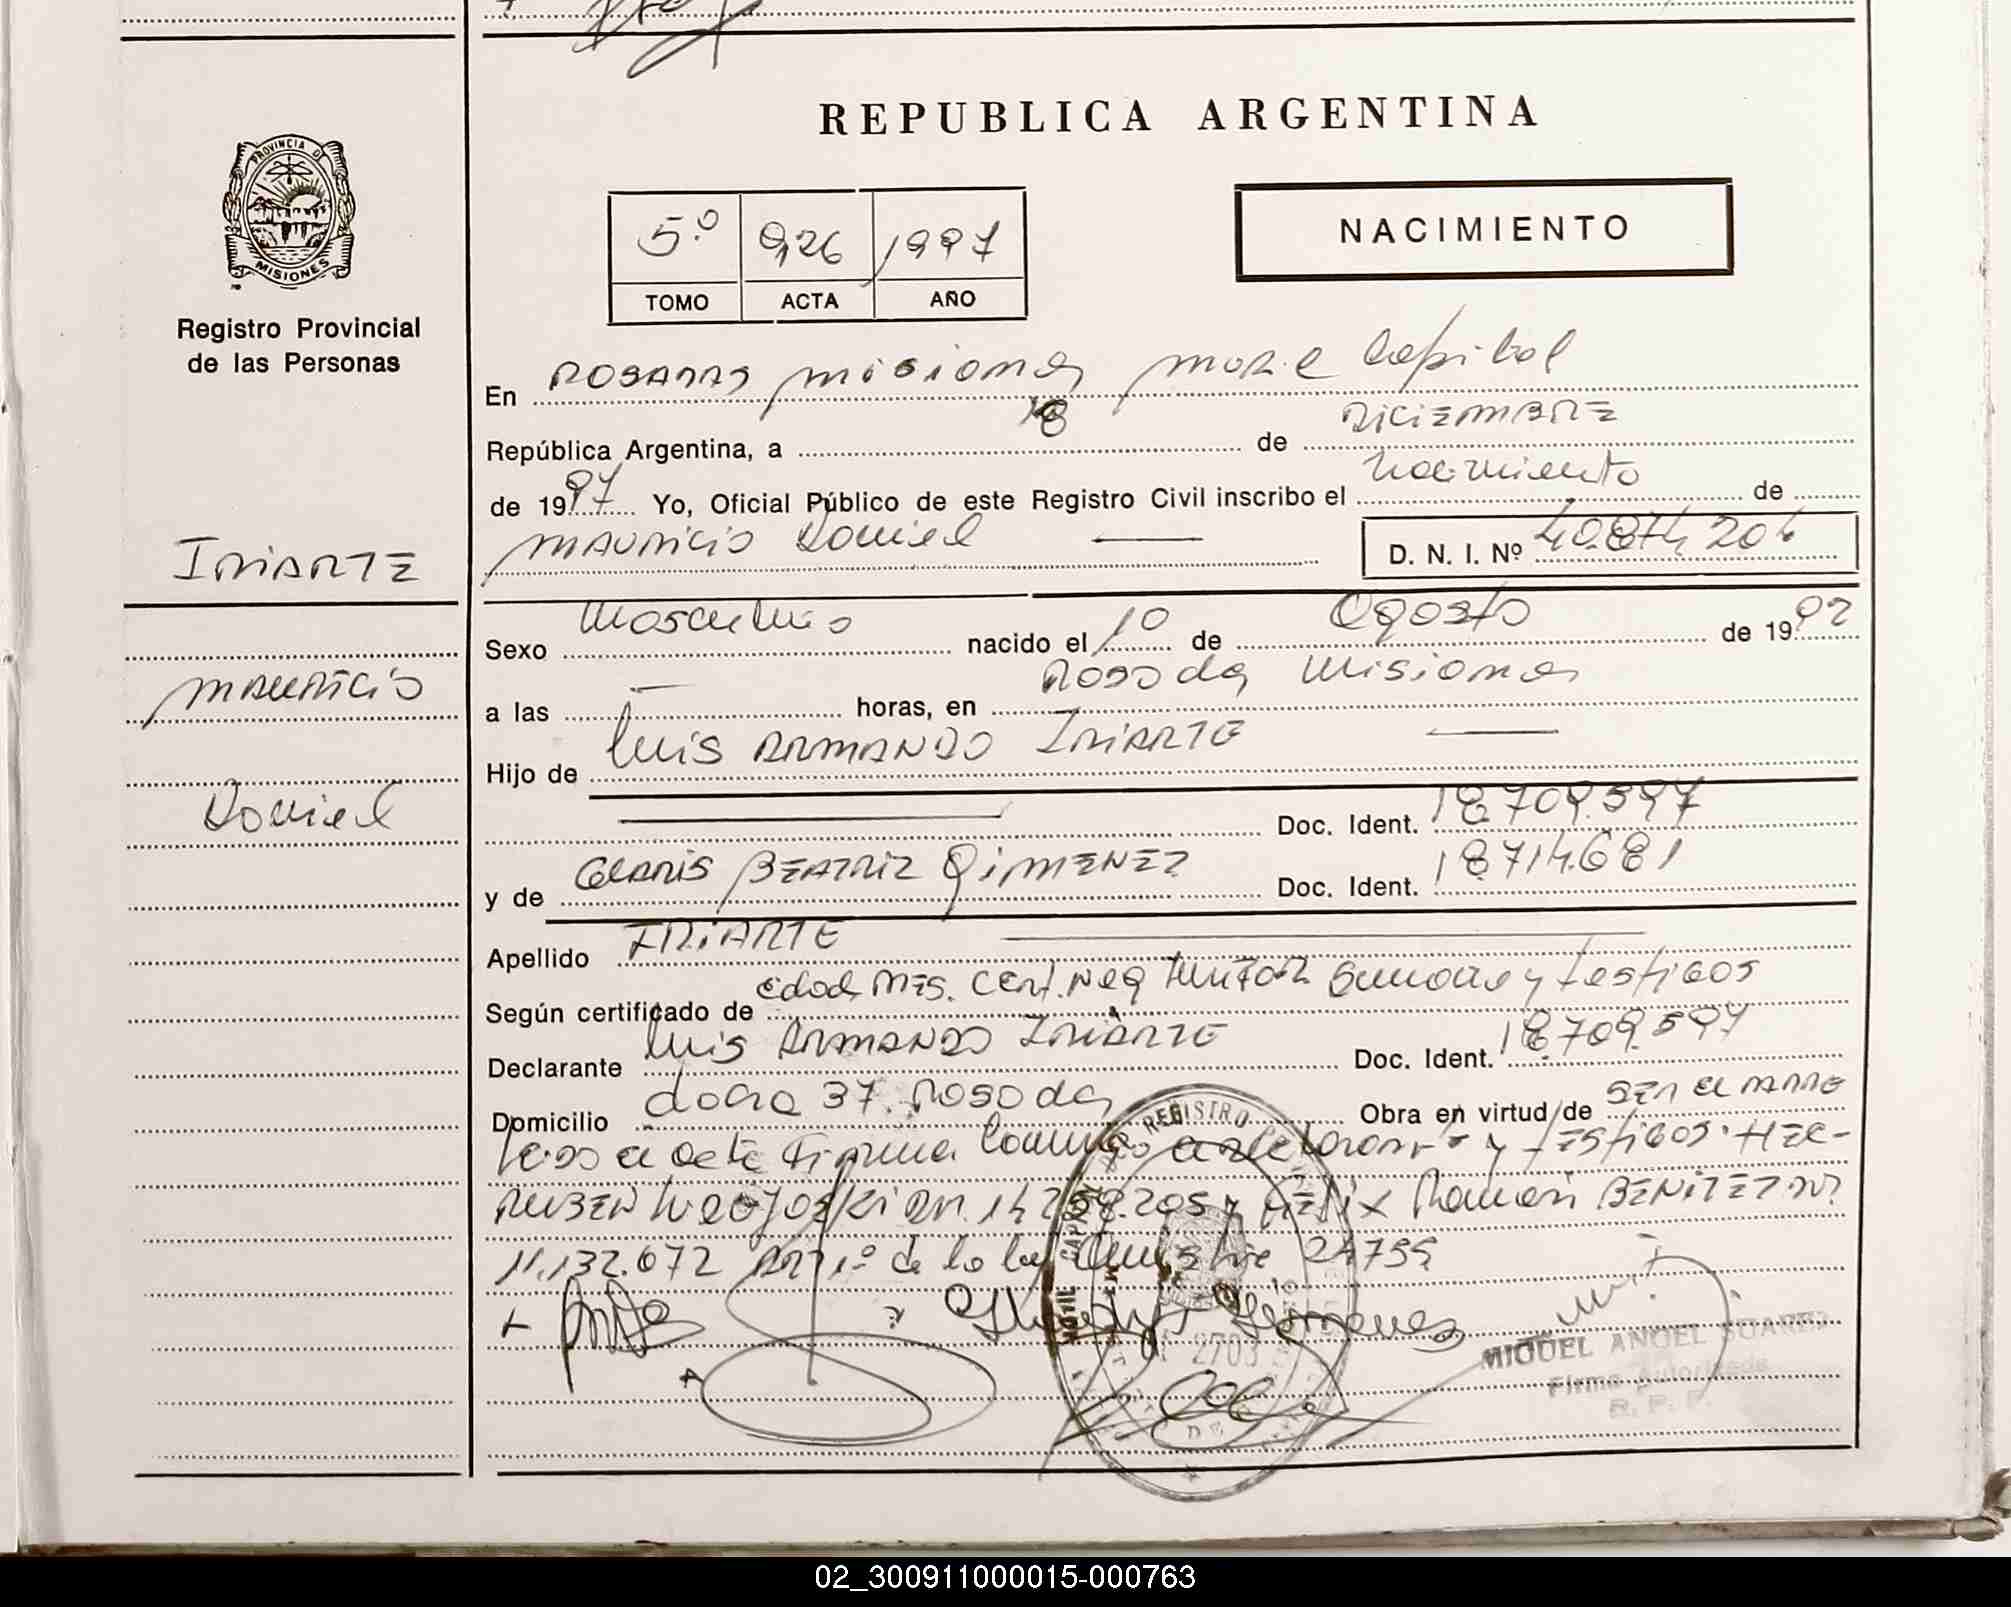 REPUBLICA ARGENTINA
PROVINCIA D
MISIONES
Registro Provincial
de las Personas
5.º 926 1997
TOMO ACTA AÑO
NACIMIENTO
En POSADAS misiones movil Capital
República Argentina, a 18 de DICIEMBRE
de 1997 Yo, Oficial Público de este Registro Civil inscribo el Nacimiento de
MAURICIO Daniel D. N. I. Nº 40.874.204
IRIARTE
MAURICIO
Daniel
Sexo Masculino nacido el 10 de Agosto de 1992
a las — horas, en Posadas Misiones
Hijo de Luis ARMANDO IRIARTE
Doc. Ident. 18709.597
y de GLADIS BEATRIZ GIMENEZ Doc. Ident. 18714.681
Apellido IRIARTE
Según certificado de edad, MES. CERT. NEG y testigos
Declarante Luis ARMANDO IRIARTE Doc. Ident. 18.709.597
Domicilio chacra 37. Posadas Obra en virtud de SER el PADRE
el acta firma Conmigo declarante y TESTIGOS:
RUBEN 14.258.205 y FELIX Ramón BENITEZ
11.132.072 de la ley 24755
REGISTRO
MOVIL CAPITAL
MIGUEL ANGEL SUAREZ
Firma Autorizada
R. P. P.
02_300911000015-000763